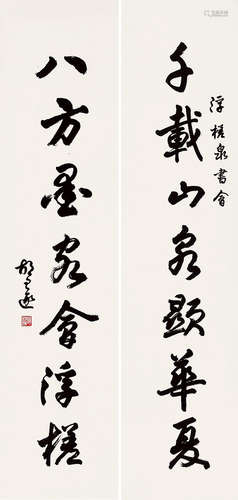 浮槎泉書會
千載山泉顯華夏
八方墨客會浮槎